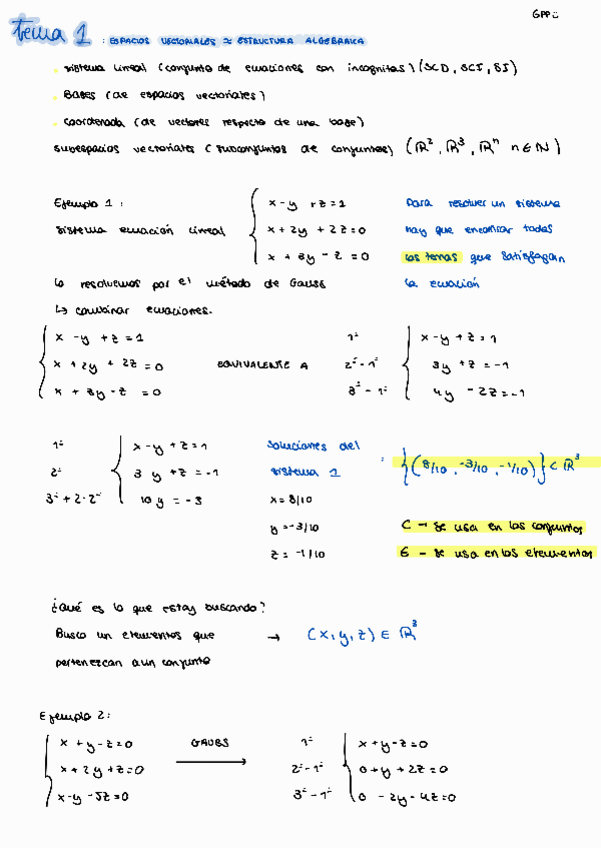 GPP
tema 1 : ESPACIOS VECTORIALES ≈ ESTRUCTURA ALGEBRAICA
. sistema lineal (conjunto de ecuaciones con incognitas) (SCD, SCI, SI)
. Bases (de espacios vectoriales)
. coordenada (de vectores respecto de una base)
subespacios vectoriales (subconjuntos de conjuntos) (ℝ², ℝ³, ℝⁿ n∈ℕ)
Ejemplo 1 :
sistema ecuación lineal
x - y + z = 1
x + 2y + 2z = 0
x + 3y - z = 0
Para resolver un sistema
hay que encontrar todas
las ternas que satisfagan
la ecuación
lo resolvemos por el método de Gauss
↳ combinar ecuaciones.
x - y + z = 1
x + 2y + 2z = 0
x + 3y - z = 0
EQUIVALENTE A
1ª x - y + z = 1
2ª - 1ª 3y + z = -1
3ª - 1ª 4y - 2z = -1
1ª x - y + z = 1
2ª 3y + z = -1
3ª + 2·2ª 10y = -3
Soluciones del
sistema 1 : {(8/10, -3/10, -1/10)} ⊂ ℝ³
x = 8/10
y = -3/10
z = -1/10
⊂ → se usa en los conjuntos
∈ - se usa en los elementos
¿Qué es lo que estoy buscando?
Busco un elementos que → (x, y, z) ∈ ℝ³
pertenezcan a un conjunto
Ejemplo 2:
x + y - z = 0
x + 2y + z = 0
x - y - 5z = 0
GAUSS
1ª x + y - z = 0
2ª - 1ª 0 + y + 2z = 0
3ª - 1ª 0 - 2y - 4z = 0